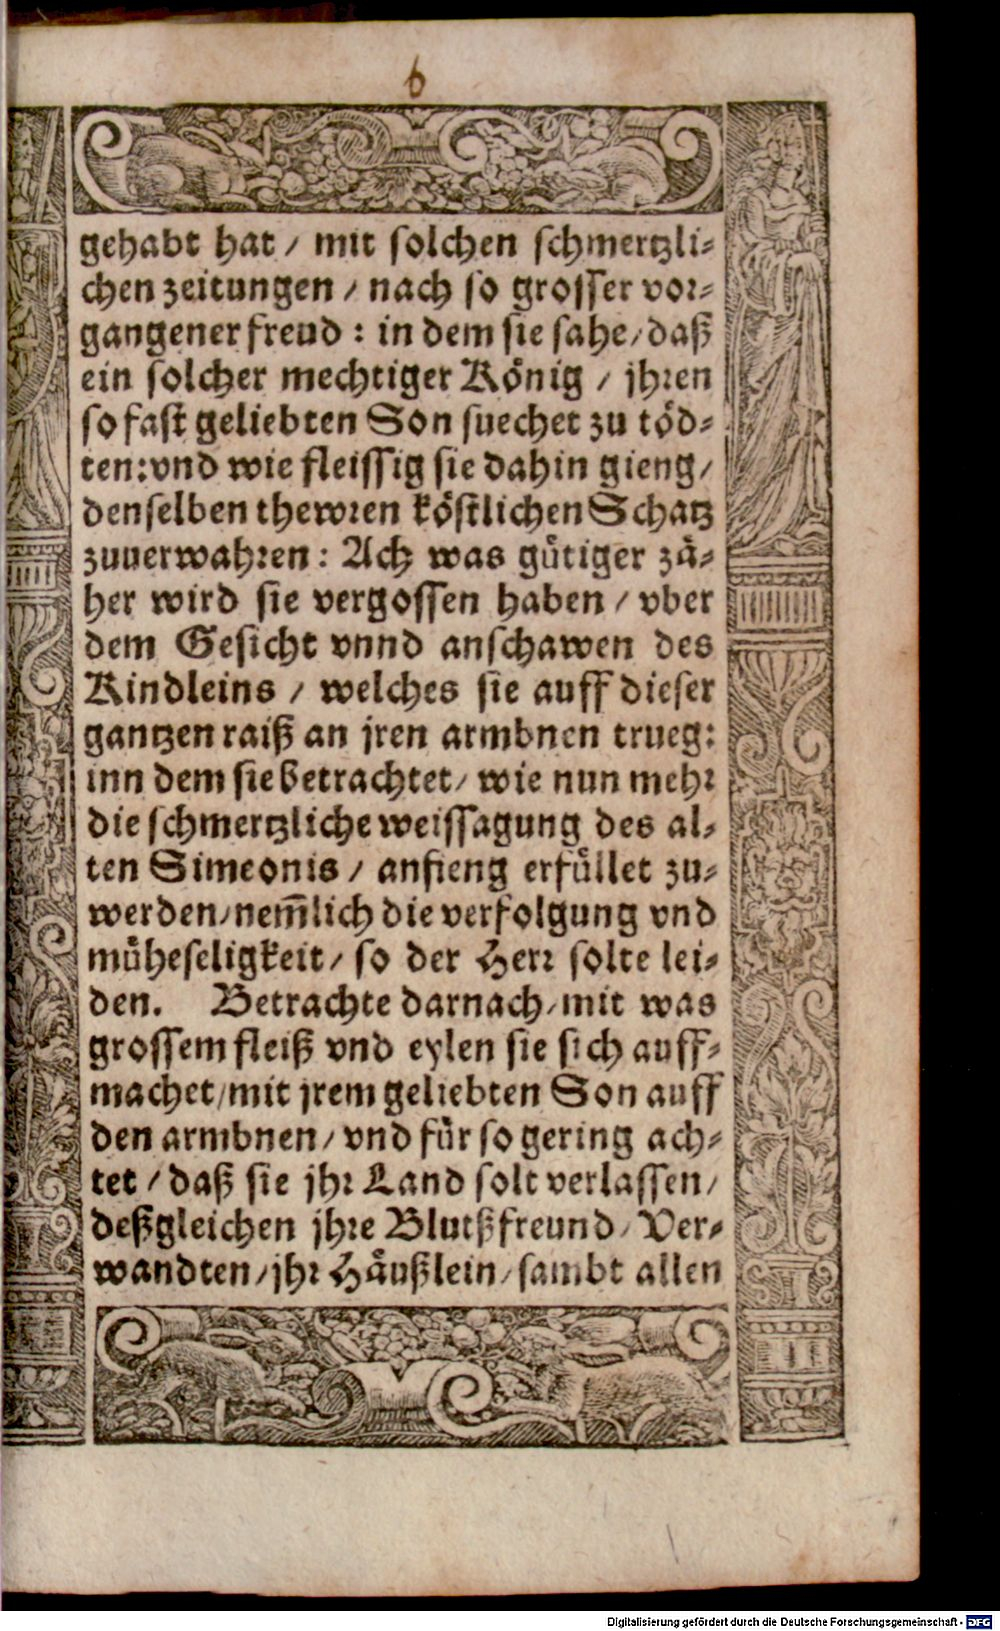 6
gehabt hat / mit solchen schmertzli⸗
chen zeitungen / nach so grosser vor⸗
gangener freud : in dem sie sahe / daß
ein solcher mechtiger König / jhren
so fast geliebten Son suechet zu töd⸗
ten: vnd wie fleissig sie dahin gieng /
denselben thewren köstlichen Schatz
zuuerwahren : Ach was gütiger zä⸗
her wird sie vergossen haben / vber
dem Gesicht vnnd anschawen des
Kindleins / welches sie auff dieser
gantzen raiß an jren armbnen trueg:
inn dem sie betrachtet / wie nun mehr
die schmertzliche weissagung des al⸗
ten Simeonis / anfieng erfüllet zu⸗
werden / nem̃lich die verfolgung vnd
müheseligkeit / so der Herr solte lei⸗
den. Betrachte darnach / mit was
grossem fleiß vnd eylen sie sich auff⸗
machet / mit jrem geliebten Son auff
den armbnen / vnd für so gering ach⸗
tet / daß sie jhr Land solt verlassen /
deßgleichen jhre Blutßfreund / Ver⸗
wandten / jhr Häußlein / sambt allen
Digitalisierung gefördert durch die Deutsche Forschungsgemeinschaft - DFG